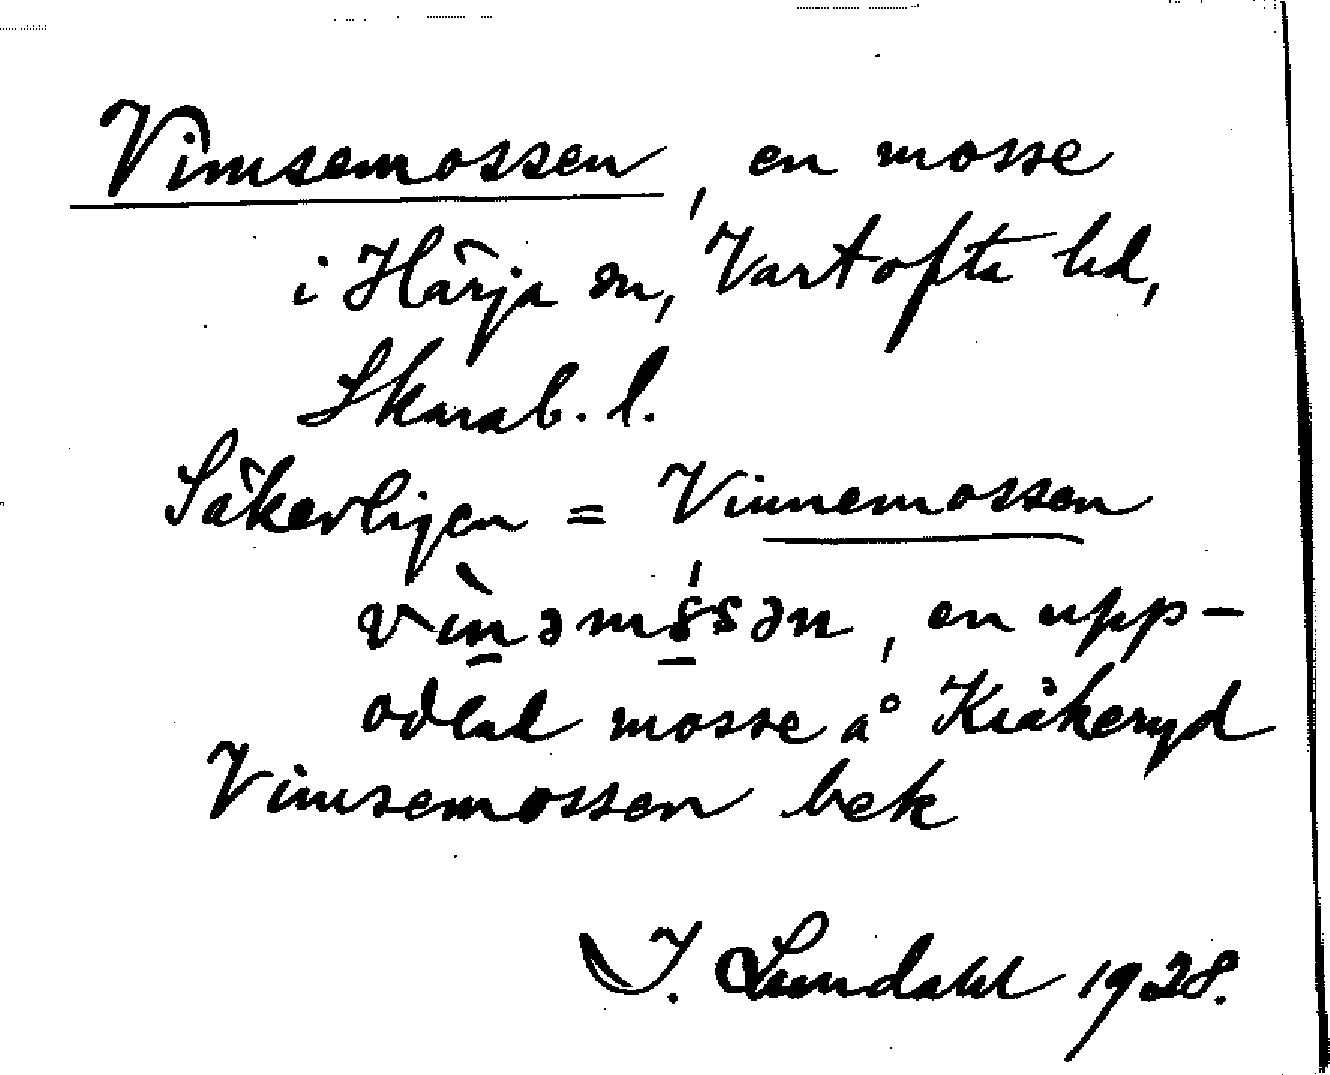 Vimsemossen, en mosse
i Härja sn, Vartofta hd,
Skarab. l.
Säkerligen = Vinnemossen
vìnəmssən, en upp-
odlad mosse å Kråkeryd
Vimsemossen bek
J. Lundahl 1928.